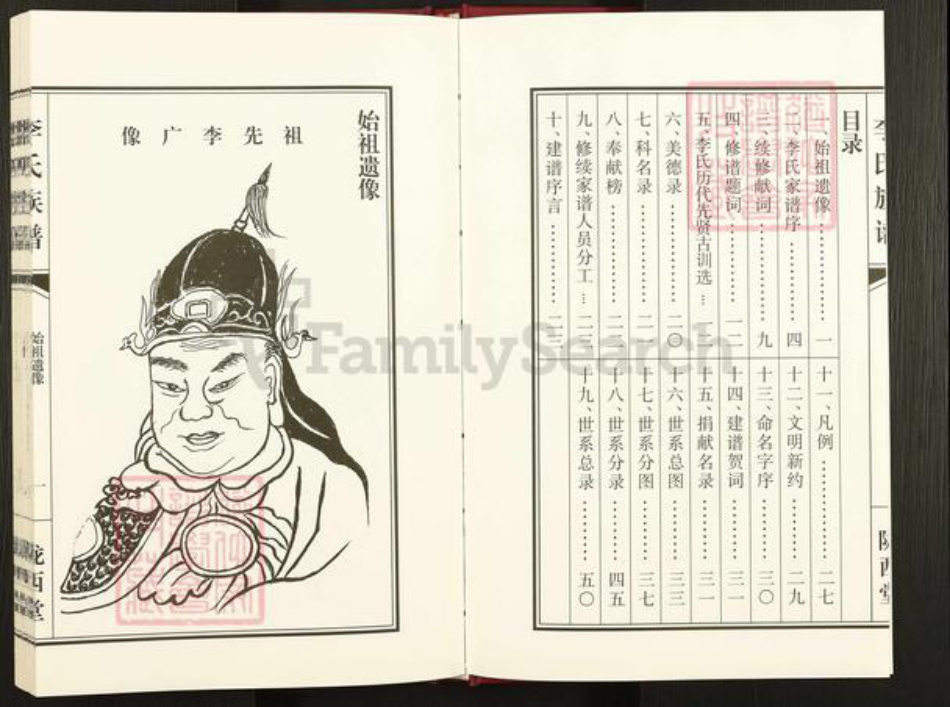 李氏族谱
目录
一、始祖遗像…………一
二、李氏家谱序…………四
三、续修献词…………九
四、修谱题词…………一二
五、李氏历代先贤古训选…
六、美德录…………二〇
七、科名录…………二一
八、奉献榜…………二二
九、修续家谱人员分工…二三
十、建谱序言…………二三
十一、凡例…………二七
十二、文明新约…………二九
十三、命名字序…………三〇
十四、建谱贺词…………三一
十五、捐献名录…………三一
十六、世系总图…………三三
十七、世系分图…………三七
十八、世系分录…………四五
十九、世系总录…………五〇
陇西堂
始祖遗像
祖先李广像
李氏族谱
始祖遗像
一
陇西堂
FamilySearch